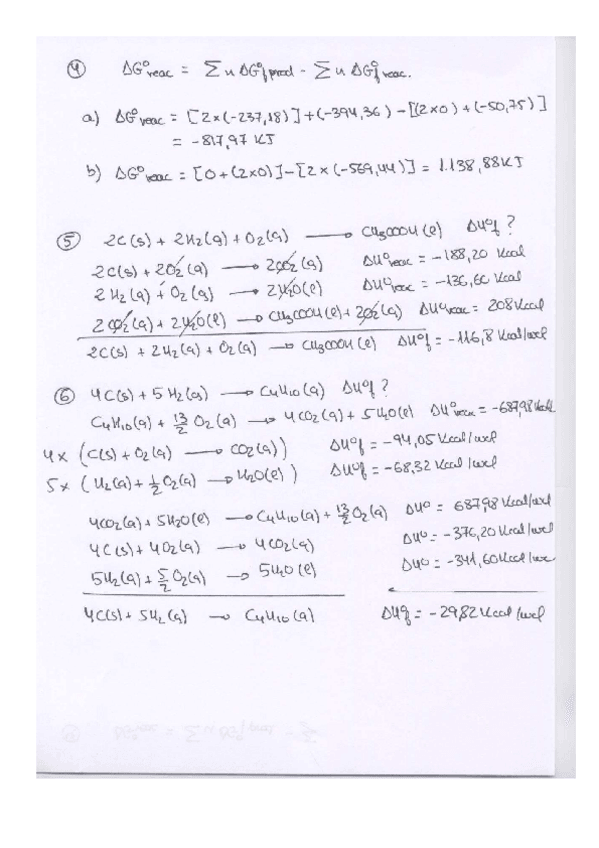 ④ ΔG°reac = Σ n ΔG°f prod - Σ n ΔG°f reac.
a) ΔG°reac = [2×(-237,18)]+(-394,36)-[(2×0)+(-50,75)]
= -817,97 KJ
b) ΔG°reac = [0+(2×0)]-[2×(-569,44)] = 1.138,88KJ
⑤ 2C(s) + 2H₂(g) + O₂(g) → CH₃COOH(l) ΔH°f ?
2C(s) + 2O₂(g) → 2CO₂(g) ΔH°reac = -188,20 Kcal
2H₂(g) + O₂(g) → 2H₂O(l) ΔH°reac = -136,60 Kcal
2CO₂(g) + 2H₂O(l) → CH₃COOH(l) + 2O₂(g) ΔH°reac = 208 Kcal
2C(s) + 2H₂(g) + O₂(g) → CH₃COOH(l) ΔH°f = -116,8 Kcal/mol
⑥ 4C(s) + 5H₂(g) → C₄H₁₀(g) ΔH°f ?
C₄H₁₀(g) + 13/2 O₂(g) → 4CO₂(g) + 5H₂O(l) ΔH°reac = -687,98 Kcal
4x (C(s) + O₂(g) → CO₂(g)) ΔH°f = -94,05 Kcal/mol
5x (H₂(g) + 1/2 O₂(g) → H₂O(l)) ΔH°f = -68,32 Kcal/mol
4CO₂(g) + 5H₂O(l) → C₄H₁₀(g) + 13/2 O₂(g) ΔH° = 687,98 Kcal/mol
4C(s) + 4O₂(g) → 4CO₂(g) ΔH° = -376,20 Kcal/mol
5H₂(g) + 5/2 O₂(g) → 5H₂O(l) ΔH° = -341,60 Kcal/mol
4C(s) + 5H₂(g) → C₄H₁₀(g) ΔH°f = -29,82 Kcal/mol